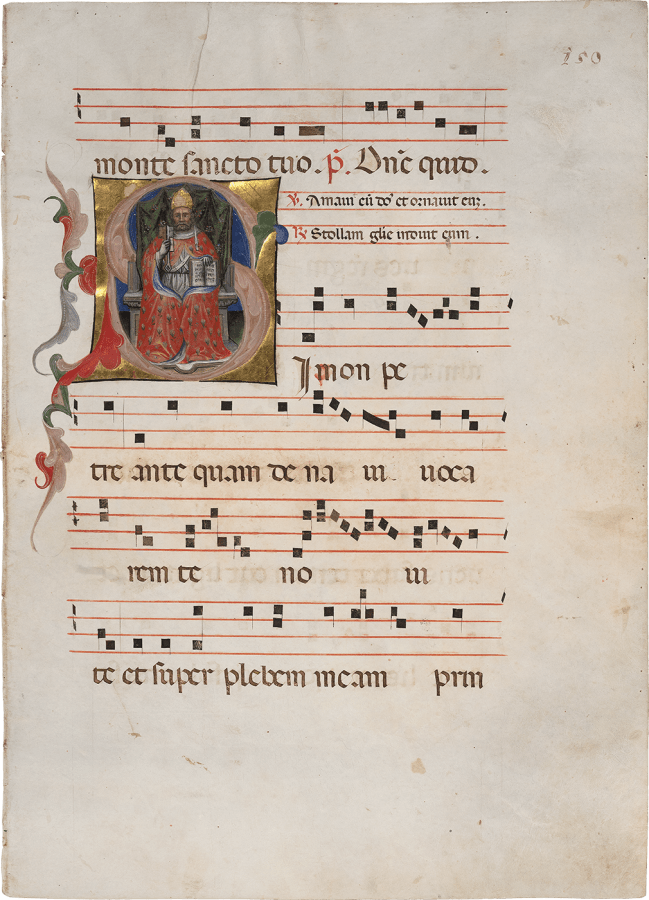 150
monte sancto tuo. p̃. Dñe quid.
v̄. Amauit eũ dõ et ornauit eũ.
R̃ Stollam glie induit eum.
Simon pe
tre ante quam de na ui uoca
rem te no ui
te et super plebem meam prin